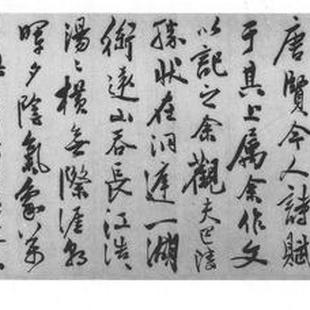 唐賢今人詩賦
于其上屬余作文
以記之余觀夫巴陵
勝狀在洞庭一湖
銜遠山吞長江浩〻
湯〻橫無際涯朝
暉夕陰氣象萬